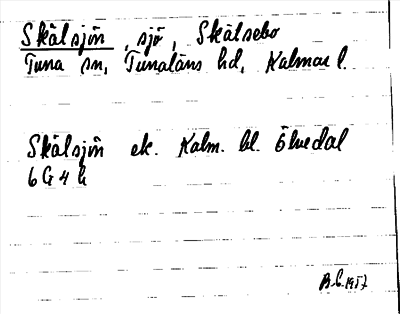 Skälsjön, sjö, Skälsebo
Tuna sn, Tunaläns hd, Kalmar l.
Skälsjön ek. Kalm. bl. Ölvedal
6 G 4 h
B.E. 1957